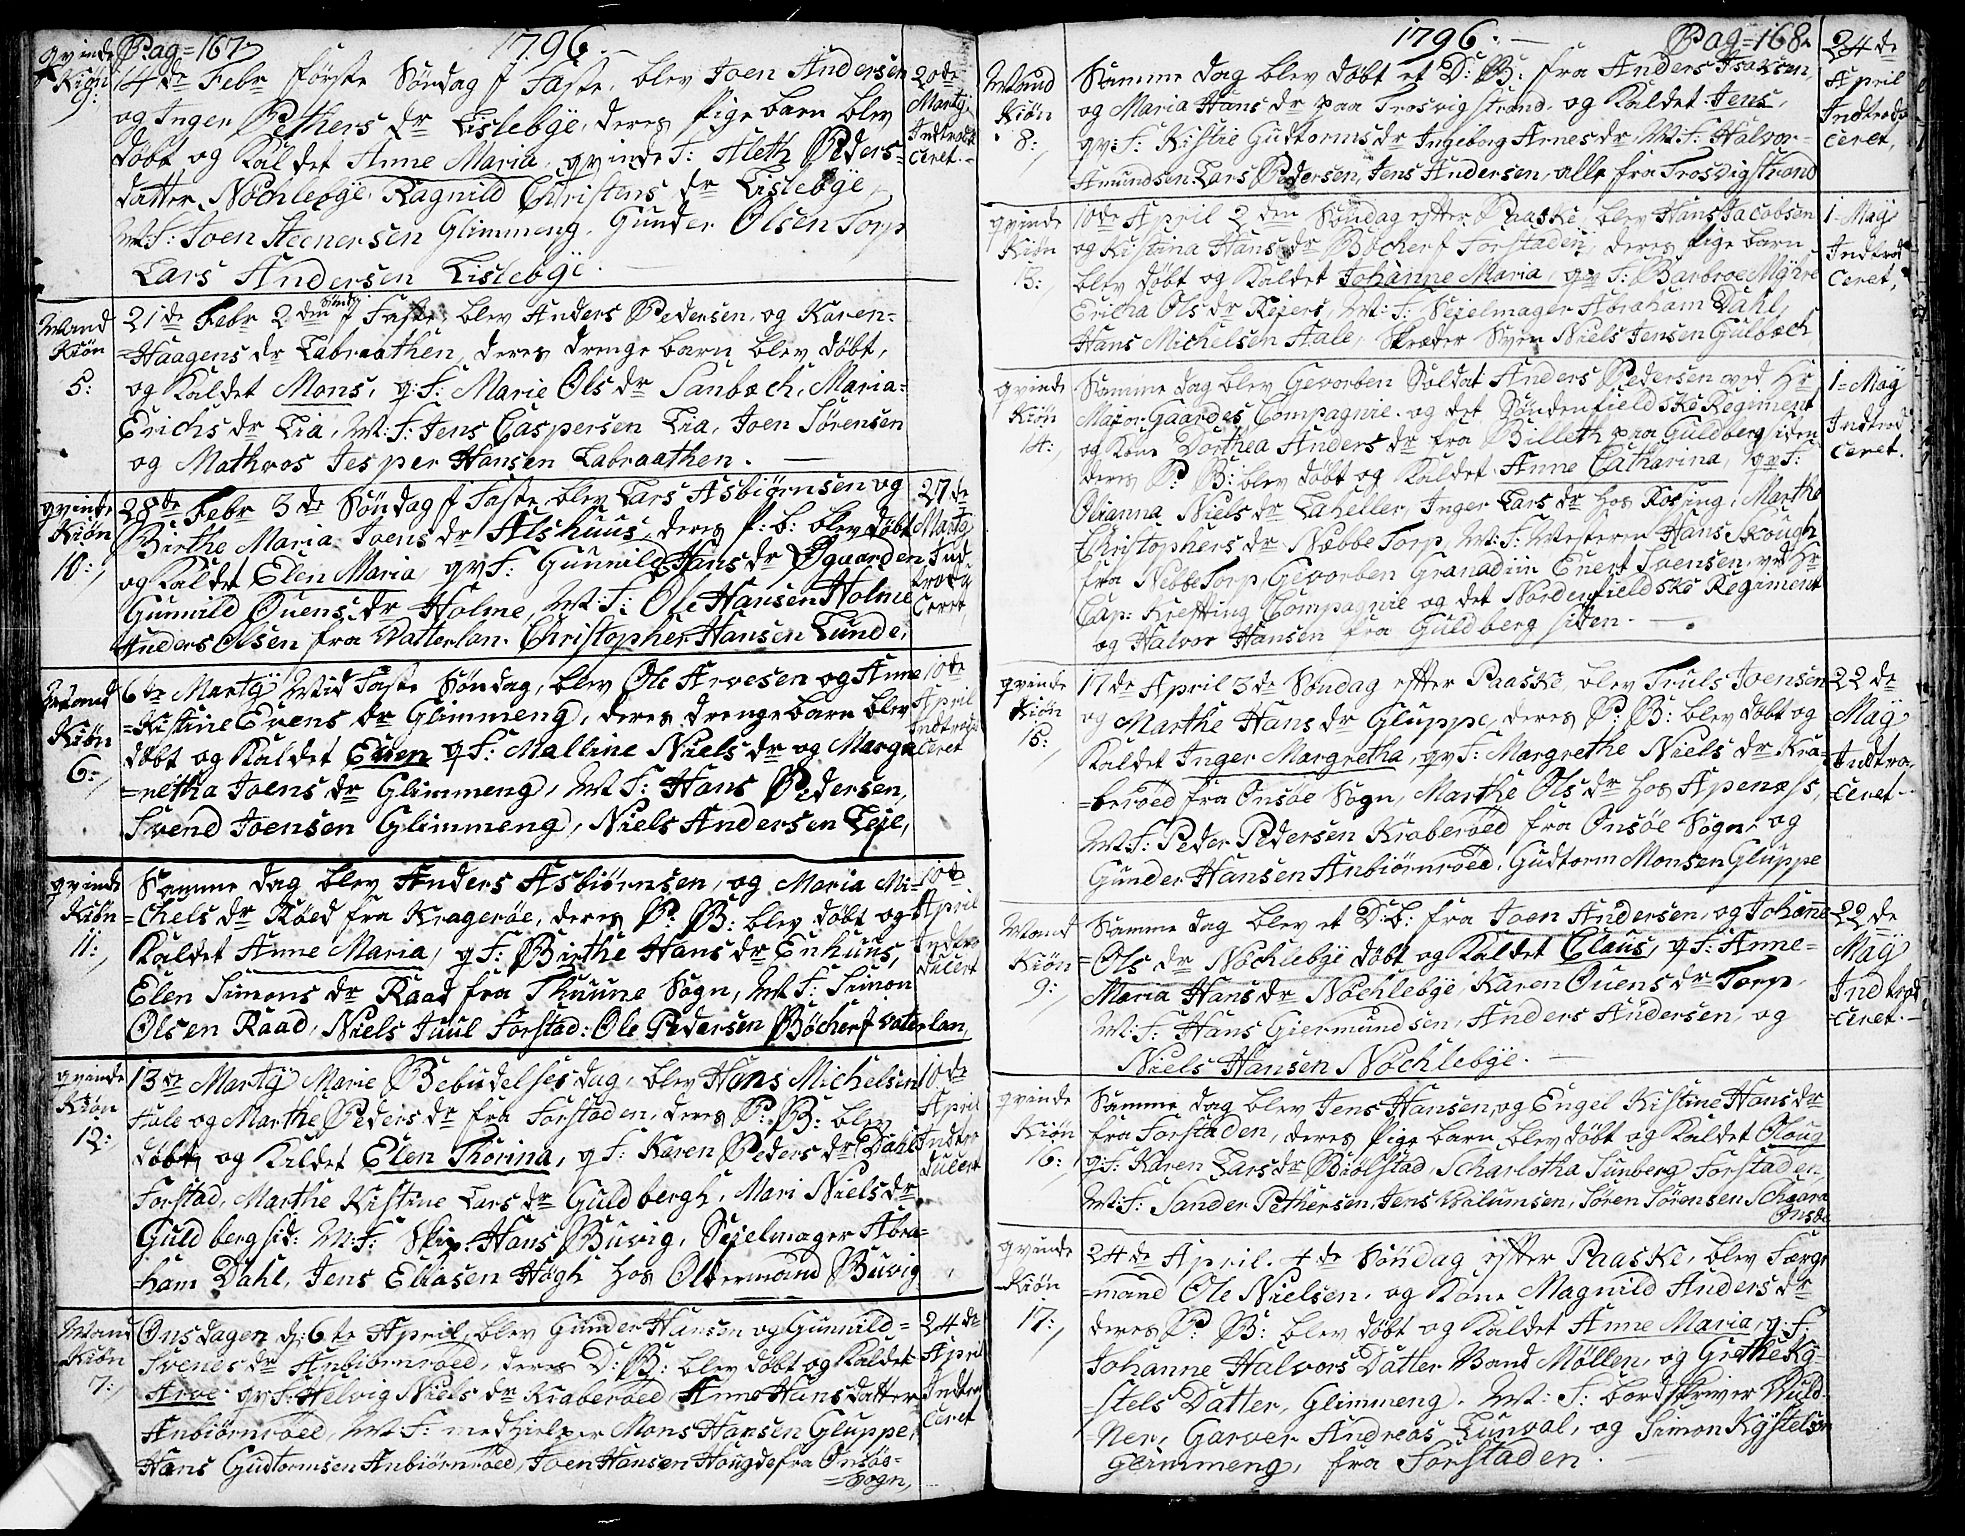 Pag=167 1796.
qvinde Kiøn 9:
14de Febr første Søndag f Faste, blev Joen Andersen
og Inger Pethers dr Lislebÿe, deres Pige barn blev
døbt og Kaldet Anne Maria, qvinde F: Aleth Peders=
datter Nöchlebÿe Ragnild Christens dr Lislebÿe,
M:F: Joen Steenersen Glimmeng, Gunder Olsen Torp
Lars Andersen Lislebÿe.
20de Martÿ Indtroduceret.
Mand Kiøn 5:
21de Febr 2den Sönd f Faste blev Anders Pedersen, og Karen=
=Haagens dr Labraathen, deres drenge barn blev døbt,
og Kaldet Mons, q:F: Marie Ols dr Sanbæch, Maria=
Erichs dr Lia, M:F: Jens Caspersen Lia, Joen Sørensen
og Mathros Jesper Hansen Labraathen.
qvinde Kiøn 10:
28de Febr 3de Søndag f Faste blev Lars Asbiørnsen og
Birthe Maria Joens dr Alshuus, deres P:b: blev døbt
og Kaldet Elen Maria, qvF: Gunnild Hans dr Øgaarden
Gunnild Ouens dr Holme, M:F: Ole Hansen Holme
Anders Olsen fra Vatterlan. Christopher Hansen Lunde,
27de Martÿ Indtroduceret
Mand Kiøn 6:
6te Martÿ Mid Faste Søndag, blev Ole Arvesen og Anne
=Kistine Evens dr Glimmeng, deres drengebarn blev
døbt og Kaldet Even q F: Malline Niels dr og Margre
=retha Joens dr Glimmeng, M:F: Hans Pedersen,
Svend Joensen Glimmeng, Niels Andersen Leÿe,
10de April Indtroduceret
qvinde Kiøn 11:
Samme dag blev Anders Asbiørnsen, og Maria Mi=
=chels dr Røed fra Kragerøe, deres P: B: blev døbt og
Kaldet Anne Maria, q F: Birthe Hans dr Enhuus,
Elen Simons dr Raad fra Thuune Sogn, M:F: Simon
Olsen Raad, Niels Juul Forstad: Ole Pedersen Böcher f Vaterlan,
10de April Indtroducert
qvinde Kiøn 12:
13de Martÿ Marie Bebudelses dag, blev Hans Michelsen
Hale og Marthe Peders dr fra Forstaden, deres P: B: blev
døbt og Kaldet Elen Thorina, q F: Karen Peders dr Dahl
Forstad, Marthe Kistine Lars dr Guldbergh, Mari Niels dr
Guldbergsid: M:F: Skip. Hans Buvig, Seÿelmager Abra=
=ham Dahl, Jens Eliasen Høgh hos Oldermand Buvig
10de April Indtroducert
Mand Kiøn 7:
Onsdagen d: 6te April, blev Gunder Hansen og Gunnild=
Svends dr Anbiørnrøed, deres D: B: blev døbt og Kaldet
Arve. qv F: Helvig Niels dr Kraberøed, Anne Hans datter
Anbiørnrøed, M:F: medhielper Mons Hansen Gluppe,
Hans Gudtormsen Anbiørnrøed, Joen Hansen Hougde fra Onsöe=
=Sogn,
24de April Indtroduceret
1796. Pag=168.
Mand Kiøn 8:
Samme dag blev døbt et D: B: fra Anders Isaksen,
og Maria Hans dr paa Trosvigstrand, og Kaldet Jens,
qv:F: Kistie Gudtorms dr Ingeborg Arnes dr, M:F: Halvor=
Amundsen Lars Pedersen, Jens Andersen, alle fra Trosvigstrand
24de April Indtroduceret,
qvinde Kiøn 13:
10de April 2den Søndag efter Paaske, blev Hans Jacobsen
og Kistina Hans dr Böcher f Forstaden, deres Pige barn
blev døbt og Kaldet Johanne Maria, qv F: Barbroe Mÿhre
Ericha Ols dr Reÿers, M:F: Seÿelmager Abraham Dahl,
Hans Michelsen Hale, Skreder Svenn Niels Jensen Gulbæch,
1=Maÿ Indtroduceret,
qvinde Kiøn 14:
Samme dag blev Gevorben Soldat Anders Pedersen ved Hr
Major Gaardes Compagnie, og det Søndenfieldske Regiment
og Kone Dorthea Anders dr fra Billeth paa Guldbergsiden
deres P: B: blev døbt og Kaldet Anne Catharina, qv F:
Olianna Niels dr Laheller, Inger Lars dr hos Kosing, Marthe
Christophers dr Næbbe Torp, M:F: Mesteren Hans Skough
fra Nebbe Torp, Gevorben Granadiin Enert Svensen, ved Hr
Cap: Krefting Compagnie og det Nordenfieldske Regiment
og Halvor Hansen fra Guldbergsiden.
1=Maÿ Indtroduceret.
qvinde Kiøn 15:
17de April 3de Søndag efter Paaske, blev Truls Joensen
og Marthe Hans dr Gluppe, deres P: B: blev døbt og
Kaldet Inger Margretha, qvF: Margrethe Niels dr Kra=
=berøed fra Onsöe Sogn, Marthe Ols dr hos Apenæss,
M:F: Peder Pedersen Kraberøed fra Onsöe Sogn, og
Gunder Hansen Anbiørnrøed, Gudtorm Monsen Gluppe
22de Maÿ Indtroduceret
Mand Kiøn 9:
Samme dag blev et D:b: fra Joen Andersen, og Johanne
=Ols dr Nöchlebÿe døbt og Kaldet Claus, q F: Anne=
Maria Hans dr Nöchlebÿe, Karen Ouens dr Torp,
M:F: Hans Giermundsen, Anders Andersen, og
Niels Hansen Nöchlebÿe.
22de Maÿ Indtroduceret.
qvinde Kiøn 16:
Samme dag blev Jens Hansen, og Engel Kistine Hans dr
fra Forstaden, deres Pige barn blev døbt og Kaldet Oloug
q:F: Karen Lars dr Biölstad, Scharlotha Sunberg Forstaden,
M:F: Sander Pethersen, Jens Valumsen, Søren Sørensen Schaara
Onsöe
qvinde Kiøn 17:
24de April. 4de Søndag efter Paaske, blev Færge
=mand Ole Nielsen, og Kone Magnild Anders dr
deres P: B: blev døbt og Kaldet Anne Maria, q:F.
Johanne Halvors Datter Vand Møllen, og Grethe Kÿ=
=stels Datter, Glimmeng. M:F: bordskriver Wuld=
=Ner, Garver Andreas Lunval, og Simon Kÿstelsen
Geimmeng, fra Forstaden.